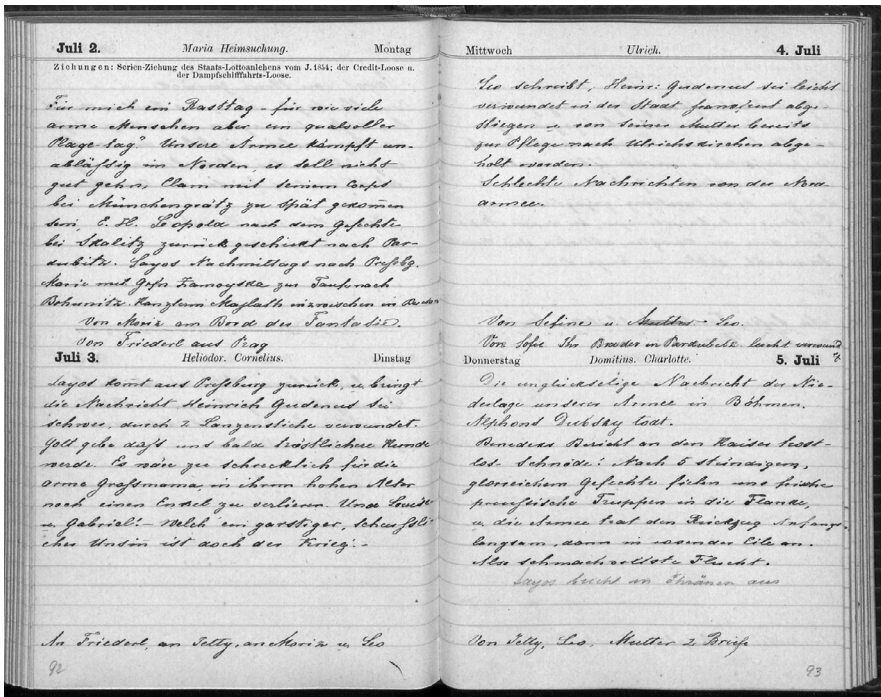 Juli 2. Maria Heimsuchung. Montag
Ziehungen: Serien-Ziehung des Staats-Lottoanlehens vom J. 1854; der Credit-Loose u.
der Dampfschifffahrts-Loose.
Für mich ein Rasttag – für wie viele
arme Menschen aber ein qualvoller
„Plage-tag“ Unsere Armee kämpft un-
abläßig im Norden, es soll nicht
gut gehn, Clam mit seinem Corps
bei Münchengrätz zu spät gekomen
sein, E. H. Leopold nach dem Gefechte
bei Skalitz zurückgeschickt nach Par-
dubitz. Layos Nachmittags nach Preßbg.
Marie mit Gfn Zamoyska zur Taufe nach
Bohunitz. Kanzlerin Majlath inzwischen in
Von Moriz am Bord der Fantasie.
Von Friederl aus Prag
Juli 3. Heliodor. Cornelius. Dinstag
Layos komt aus Preßburg zurück, u. bringt
die Nachricht Heinrich Gudenus sei
schwer, durch 2 Lanzenstiche verwundet.
Gott gebe daß uns bald tröstlichere Kunde
werde. Es wäre zu schrecklich für die
arme Großmama, in ihrem hohen Alter
noch einen Enkel zu verlieren. Und
u. Gabriel! Welch ein garstiger, scheußli
cher Unsinn ist doch der Krieg. –
An Friederl, an Tetty, an Moriz u. Leo
92
Mittwoch Ulrich. 4. Juli
Leo schreibt, Heinr: Gudenus sei leicht
verwundet in der Stadt Frankfurt abge-
stiegen u. von seiner Mutter bereits
zur Pflege nach Ulrichskirchen abge-
holt worden.
Schlechte Nachrichten von der Nord-
armee.
Von Sefine u. Mutter Leo.
Von Sofie Ihr Bruder in Pardubitz leicht verwund
Donnerstag Domitius. Charlotte. 5. Juli
Die unglückselige Nachricht der Nie-
derlage unserer Armee in Böhmen.
Alphons Dubsky todt.
Benedeks Bericht an den Kaiser trost-
los. Schnöde: Nach 5 stündigem,
glorreichem Gefechte fielen uns frische
preußische Truppen in die Flanke,
u. die Armee trat den Rückzug Anfangs
langsam, dann in rasender Eile an.
Also schmachvollste Flucht.
Layos bricht in Thränen aus
Von Tetty, Leo, Mutter 2 Briefe
93